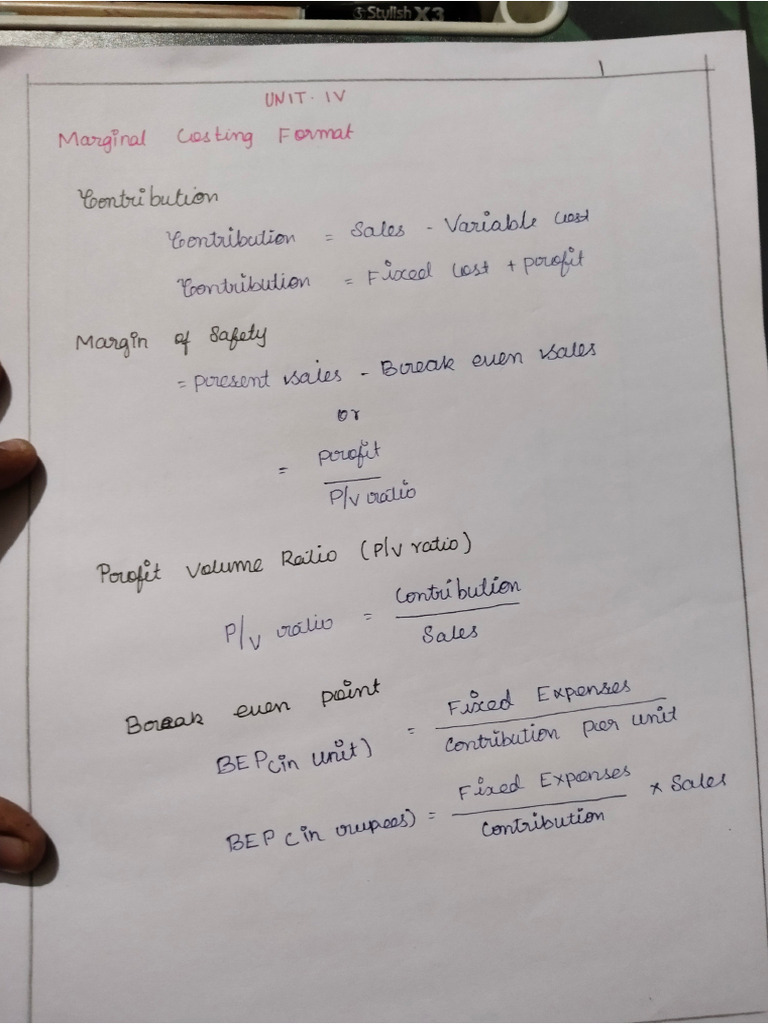 Stylish X3
1
UNIT. IV
Marginal Costing Format
Contribution
Contribution = Sales - Variable Cost
Contribution = Fixed Cost + profit
Margin of Safety
= present sales - Break even sales
or
= profit
P/v ratio
Profit Volume Ratio (P/v ratio)
P/v ratio = Contribution
Sales
Break even point
BEP (in unit) = Fixed Expenses
Contribution per unit
BEP (in rupees) = Fixed Expenses × Sales
Contribution